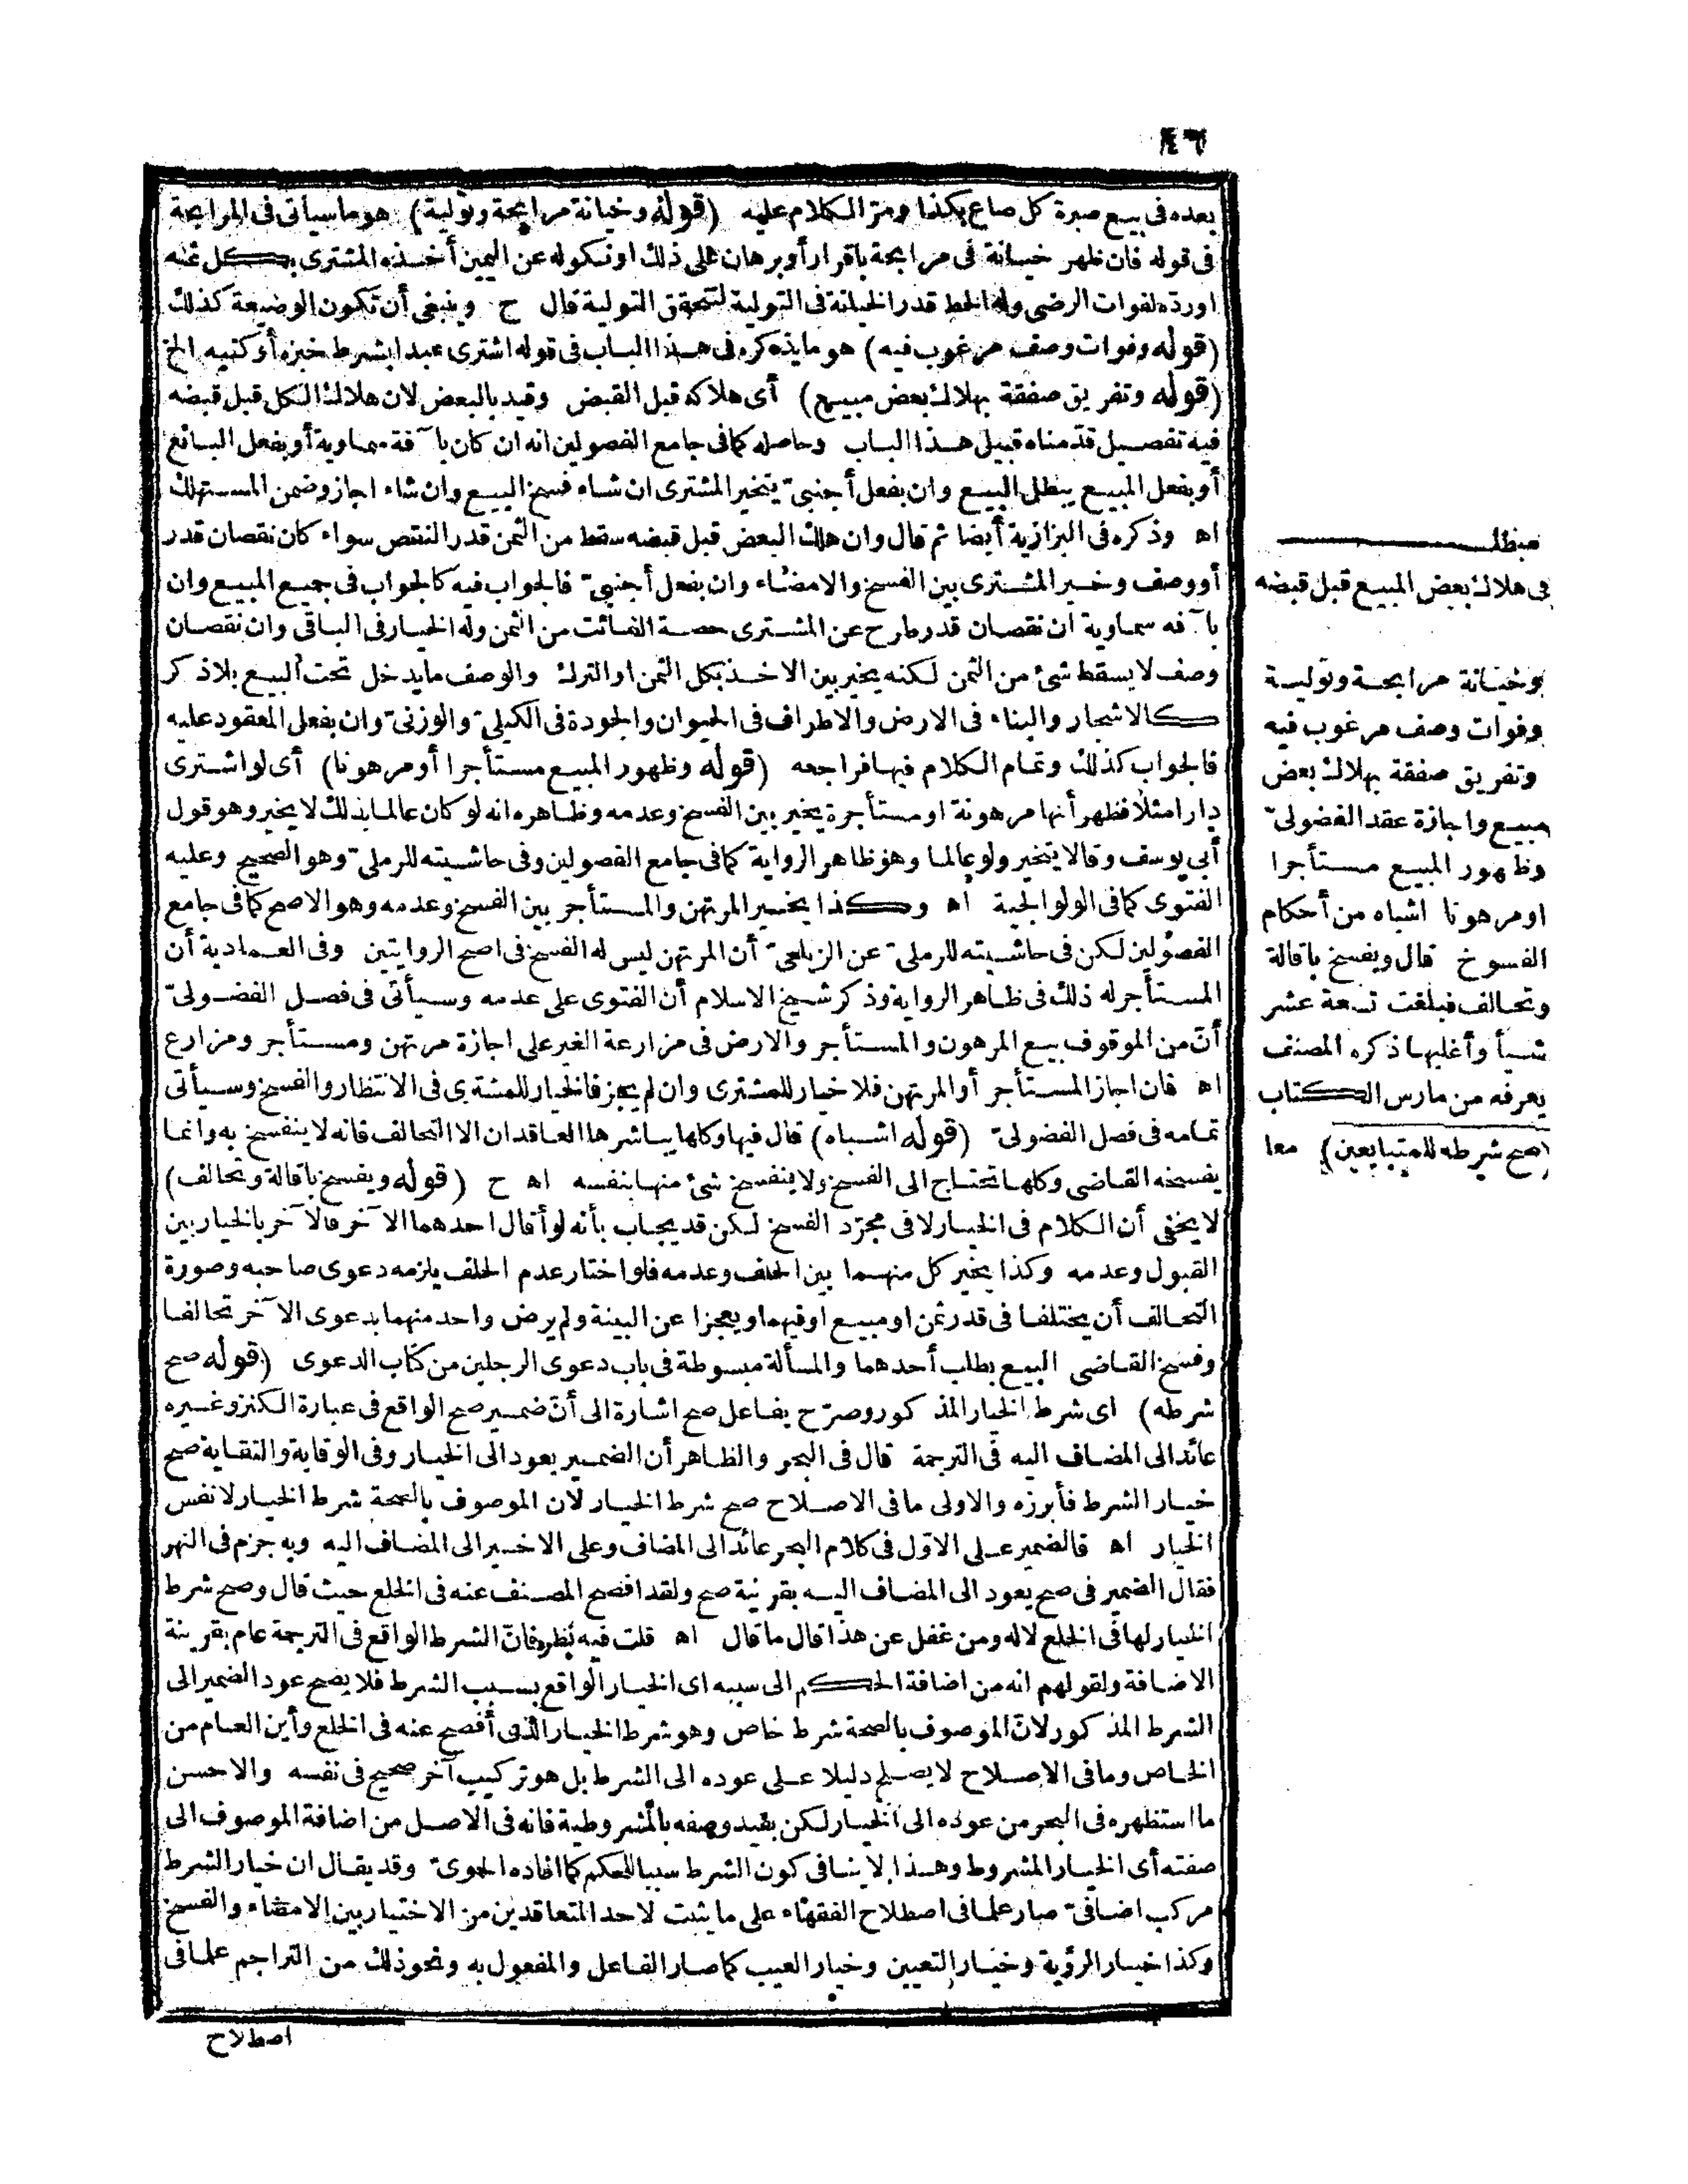 ٤٦
بعده فى بيع صبرة كل صاع بكذا ومرّ الكلام عليه (قوله وخيانة مرابحة وتولية) هو ما سيأتى فى المرابحة
فى قوله فان ظهر خيانة فى مرابحة باقرار أو برهان على ذلك او نكوله عن اليمين أخذه المشترى بكل ثمنه
او ردّه لفوات الرضى وله الحط قدر الخيانة فى التولية لتحقق التولية قال ح وينبغى أن تكون الوضيعة كذلك
(قوله وفوات وصف مرغوب فيه) هو ما يذكره فى هذا الباب فى قوله اشترى عبدا بشرط خبزه أو كتبه الخ
(قوله وتفريق صفقة بهلاك بعض مبيع) أى هلاكه قبل القبض وقيد بالبعض لان هلاك الكل قبل قبضه
فيه تفصيل قدّمناه قبيل هذا الباب وحاصله كما فى جامع الفصولين انه ان كان بآفة سماوية أو بفعل البائع
أو بفعل المبيع يبطل البيع وان بفعل أجنبىّ يتخير المشترى ان شاء فسخ البيع وان شاء اجاز وضمن المستهلك
اه وذكره فى البزازية أيضا ثم قال وان هلك البعض قبل قبضه سقط من الثمن قدر النقص سواء كان نقصان قدر
أو وصف وخير المشترى بين الفسخ والامضاء وان بفعل أجنبىّ فالجواب فيه كالجواب فى جميع المبيع وان
بآفه سماوية ان نقصان قدر طرح عن المشترى حصة الفائت من الثمن وله الخيار فى الباقى وان نقصان
وصف لا يسقط شئ من الثمن لكنه يخير بين الاخذ بكل الثمن او الترك والوصف ما يدخل تحت البيع بلا ذكر
كالاشجار والبناء فى الارض والاطراف فى الحيوان والجودة فى الكيلىّ والوزنىّ وان بفعل المعقود عليه
فالجواب كذلك وتمام الكلام فيها فراجعه (قوله وظهور المبيع مستأجرا أو مرهونا) أى لو اشترى
دارا مثلا فظهر أنها مرهونة او مستأجرة يخير بين الفسخ وعدمه وظاهره انه لو كان عالما بذلك لا يخير وهو قول
أبى يوسف وقالا يتخير ولو عالما وهو ظاهر الرواية كما فى جامع الفصولين وفى حاشيته للرملىّ وهو الصحيح وعليه
الفتوى كما فى الولوالجية اه وكذا يخير المرتهن والمستأجر بين الفسخ وعدمه وهو الاصح كما فى جامع
الفصولين لكن فى حاشيته للرملىّ عن الزيلعىّ أن المرتهن ليس له الفسخ فى اصح الروايتين وفى العمادية أن
المستأجر له ذلك فى ظاهر الرواية وذكر شيخ الاسلام أن الفتوى على عدمه وسيأتى فى فصل الفضولىّ
أنّ من الموقوف بيع المرهون والمستأجر والارض فى مزارعة الغير على اجازة مرتهن ومستأجر ومزارع
اه فان اجاز المستأجر أو المرتهن فلا خيار للمشترى وان لم يجز فالخيار للمشترى فى الانتظار والفسخ وسيأتى
تمامه فى فصل الفضولىّ (قوله اشباه) قال فيها وكلها يباشرها العاقدان الا التحالف فانه لا ينفسخ به وانما
يفسخه القاضى وكلها تحتاج الى الفسخ ولا ينفسخ شئ منها بنفسه اه ح (قوله ويفسخ باقالة وتحالف)
لا يخفى أن الكلام فى الخيار لا فى مجرّد الفسخ لكن قد يجاب بأنه لو أقال احدهما الآخر فالآخر بالخيار بين
القبول وعدمه وكذا يخير كل منهما بين الحلف وعدمه فلو اختار عدم الحلف يلزمه دعوى صاحبه وصورة
التحالف أن يختلفا فى قدر ثمن او مبيع او فيهما ويعجزا عن البينة ولم يرض واحد منهما بدعوى الآخر تحالفا
وفسخ القاضى البيع بطلب أحدهما والمسألة مبسوطة فى باب دعوى الرجلين من كتاب الدعوى (قوله صح
شرطه) اى شرط الخيار المذكور وصرّح بفاعل صح اشارة الى أنّ ضمير صح الواقع فى عبارة الكنز وغيره
عائد الى المضاف اليه فى الترجمة قال فى البحر والظاهر أن الضمير يعود الى الخيار وفى الوقاية والنقاية صح
خيار الشرط فأبرزه والاولى ما فى الاصلاح صح شرط الخيار لان الموصوف بالصحة شرط الخيار لا نفس
الخيار اه فالضمير على الاوّل فى كلام البحر عائد الى المضاف وعلى الاخير الى المضاف اليه وبه جزم فى النهر
فقال الضمير فى صح يعود الى المضاف اليه بقرينة صح ولقد افصح المصنف عنه فى الخلع حيث قال وصح شرط
الخيار لها فى الخلع لا له ومن غفل عن هذا قال ما قال اه قلت فيه نظر فانّ الشرط الواقع فى الترجمة عام بقرينة
الاضافة ولقولهم انه من اضافة الحكم الى سببه اى الخيار الواقع بسبب الشرط فلا يصح عود الضمير الى
الشرط المذكور لانّ الموصوف بالصحة شرط خاص وهو شرط الخيار الذى أفصح عنه فى الخلع وأين العام من
الخاص وما فى الاصلاح لا يصلح دليلا على عوده الى الشرط بل هو تركيب آخر صحيح فى نفسه والاحسن
ما استظهره فى البحر من عوده الى الخيار لكن بقيد وصفه بالمشروطية فانه فى الاصل من اضافة الموصوف الى
صفته أى الخيار المشروط وهذا لا ينافى كون الشرط سببا للحكم كما افاده الحموىّ وقد يقال ان خيار الشرط
مركب اضافىّ صار علما فى اصطلاح الفقهاء على ما يثبت لاحد المتعاقدين من الاختيار بين الامضاء والفسخ
وكذا خيار الرؤية وخيار التعيين وخيار العيب كما صار الفاعل والمفعول به ونحو ذلك من التراجم علما فى
اصطلاح
مطلب
فى هلاك بعض المبيع قبل قبضه
وخيانة مرابحة وتولية
وفوات وصف مرغوب فيه
وتفريق صفقة بهلاك بعض
مبيع واجازة عقد الفضولىّ
وظهور المبيع مستأجرا
او مرهونا اشباه من أحكام
الفسوخ قال ويفسخ باقالة
وتحالف فبلغت تسعة عشر
شيأ وأغلبها ذكره المصنف
يعرفه من مارس الكتاب
(صح شرطه للمتبايعين) معا